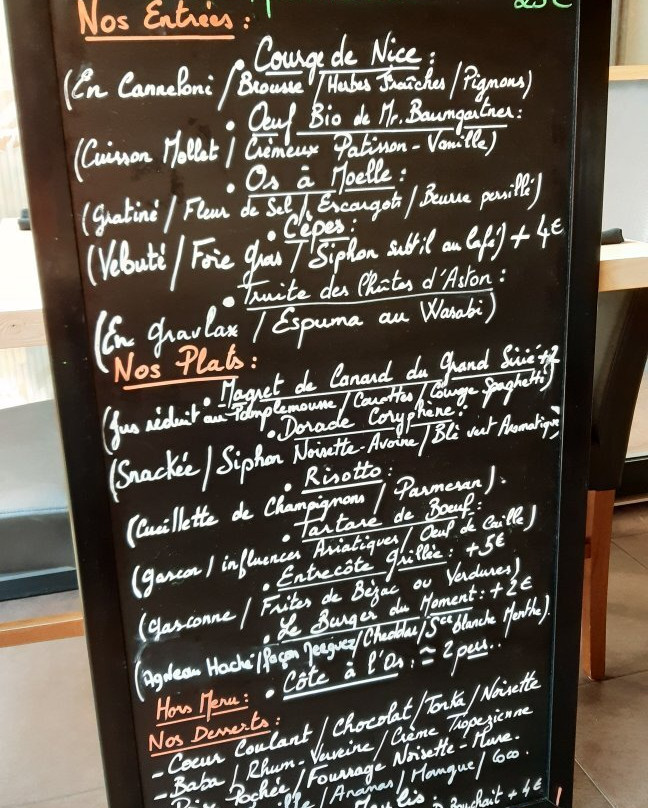 Nos Entrées :
• Courge de Nice :
(En Canneloni / Brousse / Herbes Fraîches / Pignons)
• Oeuf Bio de Mr. Baumgartner :
(Cuisson Mollet / Crémeux Patisson - Vanille)
• Os à Moelle :
(Gratiné / Fleur de Sel / Escargots / Beurre persillé)
• Cêpes :
(Velouté / Foie gras / Siphon subtil au Café) + 4€
• Truite des Chûtes d'Aston :
(En gravlax / Espuma au Wasabi)
Nos Plats :
• Magret de Canard du Grand Sirié +2
(Jus réduit au Pamplemousse / Carottes / Courge Spaghetti)
• Dorade Coryphène :
(Snackée / Siphon Noisette-Avoine / Blé vert Aromatique)
• Risotto :
(Cueillette de Champignons / Parmesan).
• Tartare de Boeuf :
(gascon / influences Asiatiques / Oeuf de Caille)
• Entrecôte grillée : +5€
(gasconne / Frites de Bézac ou Verdures)
• Le Burger du Moment : +2€
(Agneau Haché / façon Merguez / Cheddar / Sce blanche Menthe).
• Côte à l'Os : ≃ 2 pers..
Hors Menu :
Nos Desserts :
- Coeur Coulant / Chocolat / Tonka / Noisette
- Baba / Rhum - Verveine / Crème Tropezienne
Pochée / Fourrage Noisette - Mure.
/ Ananas / Mangue / Coco.
+ 4€